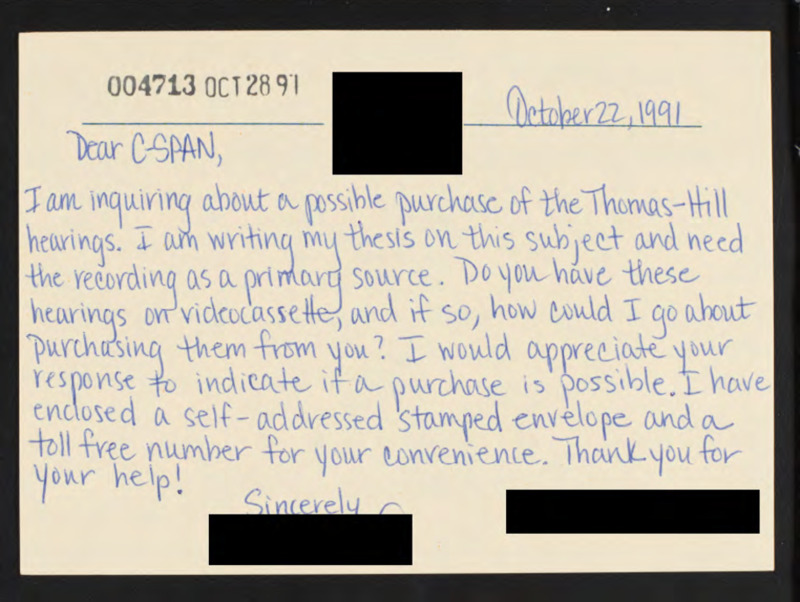 004713 OCT 28 91
October 22, 1991
Dear C-SPAN,
I am inquiring about a possible purchase of the Thomas-Hill
hearings. I am writing my thesis on this subject and need
the recording as a primary source. Do you have these
hearings on videocassette, and if so, how could I go about
purchasing them from you? I would appreciate your
response to indicate if a purchase is possible. I have
enclosed a self-addressed stamped envelope and a
toll free number for your convenience. Thank you for
your help!
Sincerely